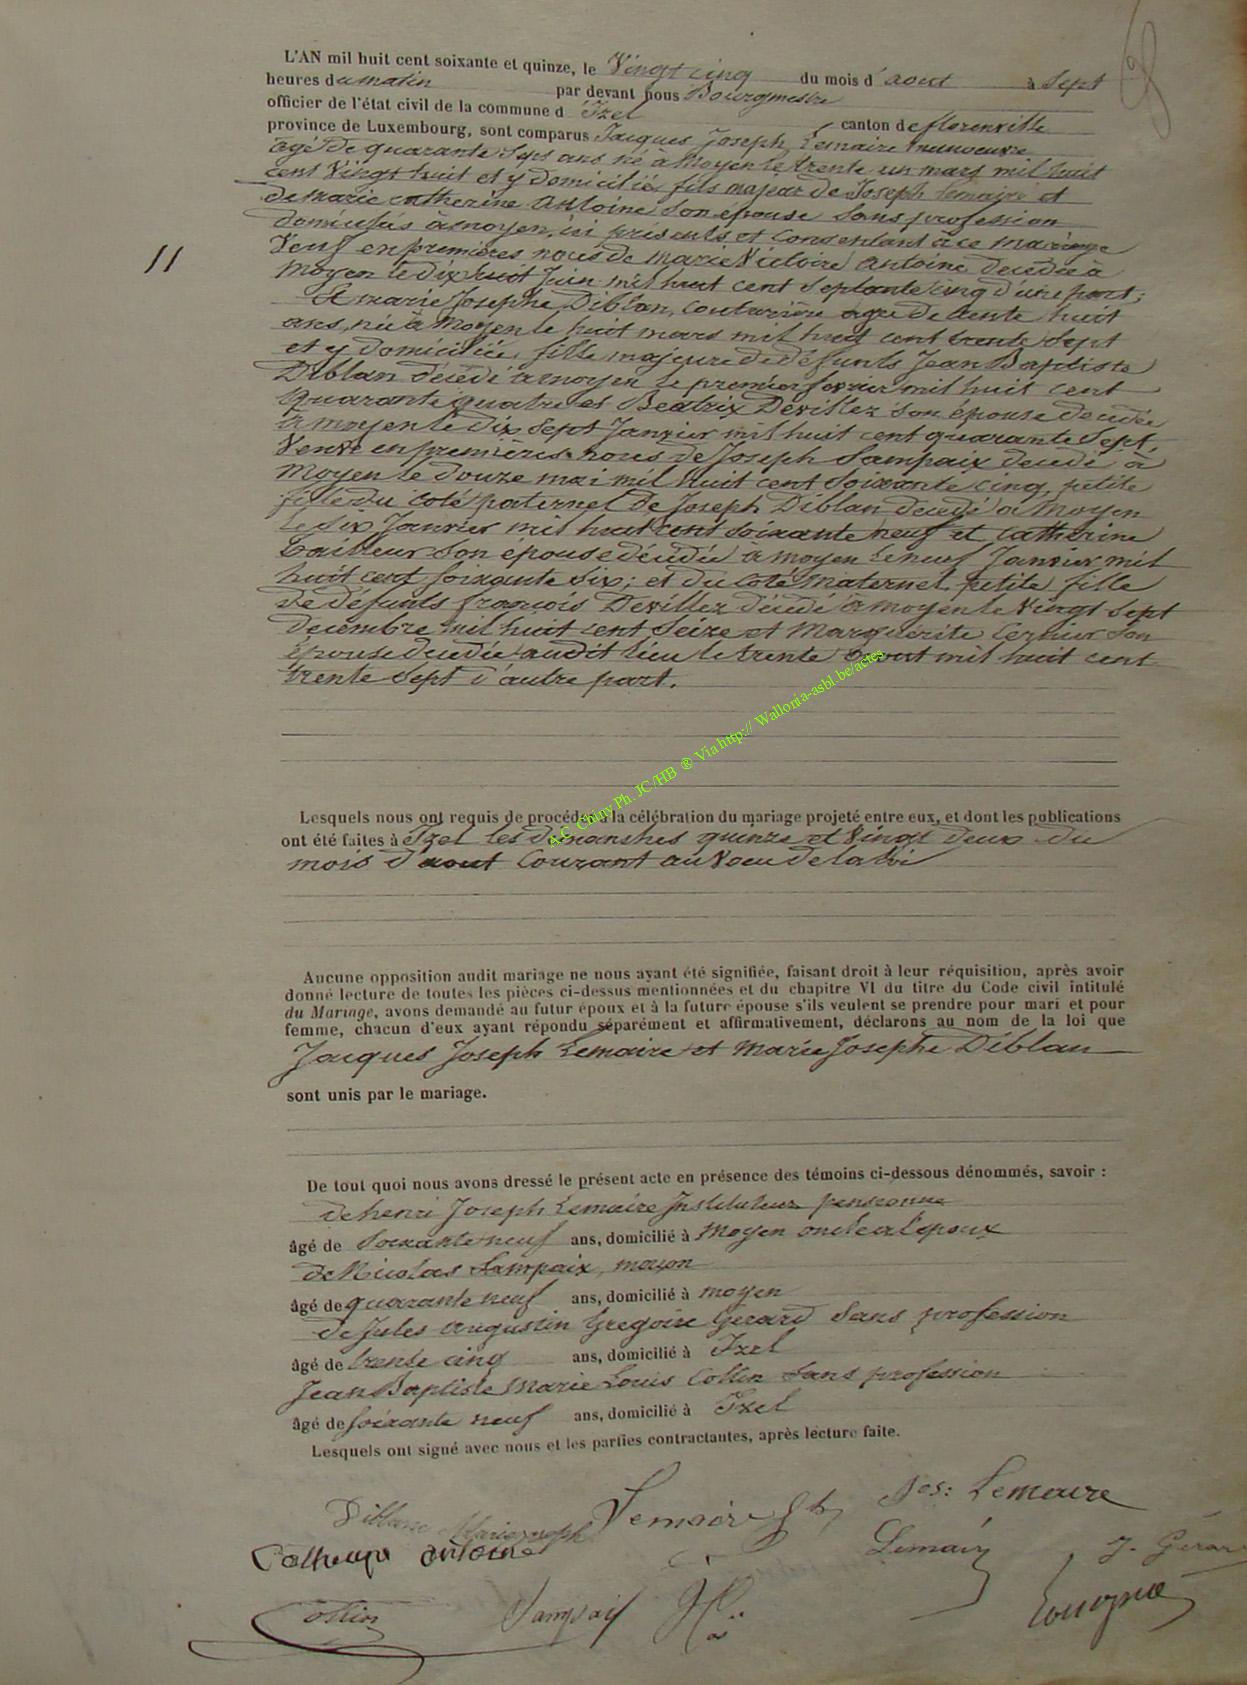 L'AN mil huit cent soixante et quinze, le Vingt cinq du mois d'aout à Sept
heures du matin par devant nous Bourgmestre
officier de l'état civil de la commune d'Izel canton de florenville
province de Luxembourg, sont comparus Jacques Joseph Lemaire
agé de quarante Sept ans né à Moyen le trente un mars mil huit
cent Vingt huit et y domicilié, fils majeur de Joseph Lemaire et
de marie catherine Antoine Son épouse Sans profession
domiciliés à moyen, ici présents et Consentant à ce mariage
Veuf en premières noces de marie Victoire Antoine décédée à
Moyen le dix huit Juin mil huit cent Septante cinq d'une part;
Et marie Josephe Diblan, Couturière agée de trente huit
ans, née à Moyen le huit mars mil huit cent trente Sept
et y domiciliée, fille majeure de défunts Jean Baptiste
Diblan décédé à moyen le premier fevrier mil huit cent
Quarante quatre et Beatrix Devillez son épouse décédée
à moyen le dix Sept Janvier mil huit cent quarante Sept,
Veuve en premières noces de Joseph Sampaix décédé à
Moyen le douze mai mil huit cent Soixante cinq, petite
fille du coté paternel de Joseph Diblan décédé à Moyen
le Six Janvier mil huit cent soixante neuf et Catherine
Tailleur Son épouse décédée à moyen le neuf Janvier mil
huit cent Soixante Six; et du coté Maternel petite fille
de défunts françois Devillez décédé à moyen le Vingt Sept
decembre mil huit cent Seize et Marguerite Son
épouse décédée audit lieu le trente aout mil huit cent
trente Sept d'autre part.
11
Lesquels nous ont requis de procéder à la célébration du mariage projeté entre eux, et dont les publications
ont été faites à Izel les dimanches quinze et Vingt deux du
mois d'aout Courant au Voeu de la loi
A.C. Chiny Ph. JC/HB ® Via http:// Wallonia-asbl.be/actes
Aucune opposition audit mariage ne nous ayant été signifiée, faisant droit à leur réquisition, après avoir
donné lecture de toutes les pièces ci-dessus mentionnées et du chapitre VI du titre du Code civil intitulé
du Mariage, avons demandé au futur époux et à la future épouse s'ils veulent se prendre pour mari et pour
femme, chacun d'eux ayant répondu séparément et affirmativement, déclarons au nom de la loi que
Jacques Joseph Lemaire et Marie Josephe Diblan
sont unis par le mariage.
De tout quoi nous avons dressé le présent acte en présence des témoins ci-dessous dénommés, savoir :
de henri Joseph Lemaire Instituteur pensionné
âgé de Soixante neuf ans, domicilié à Moyen oncle à l'époux
de Nicolas Sampaix, maçon
âgé de quarante neuf ans, domicilié à moyen
de Jules Augustin Gregoire Gerard Sans profession
âgé de trente cinq ans, domicilié à Izel
Jean Baptiste Marie Louis Collin Sans profession
âgé de Soixante neuf ans, domicilié à Izel
Lesquels ont signé avec nous et les parties contractantes, après lecture faite.
Jos: Lemaire
Diblan Marie joseph Lemaire
antoine Lemaire J. Gérard
Collin Sampaix